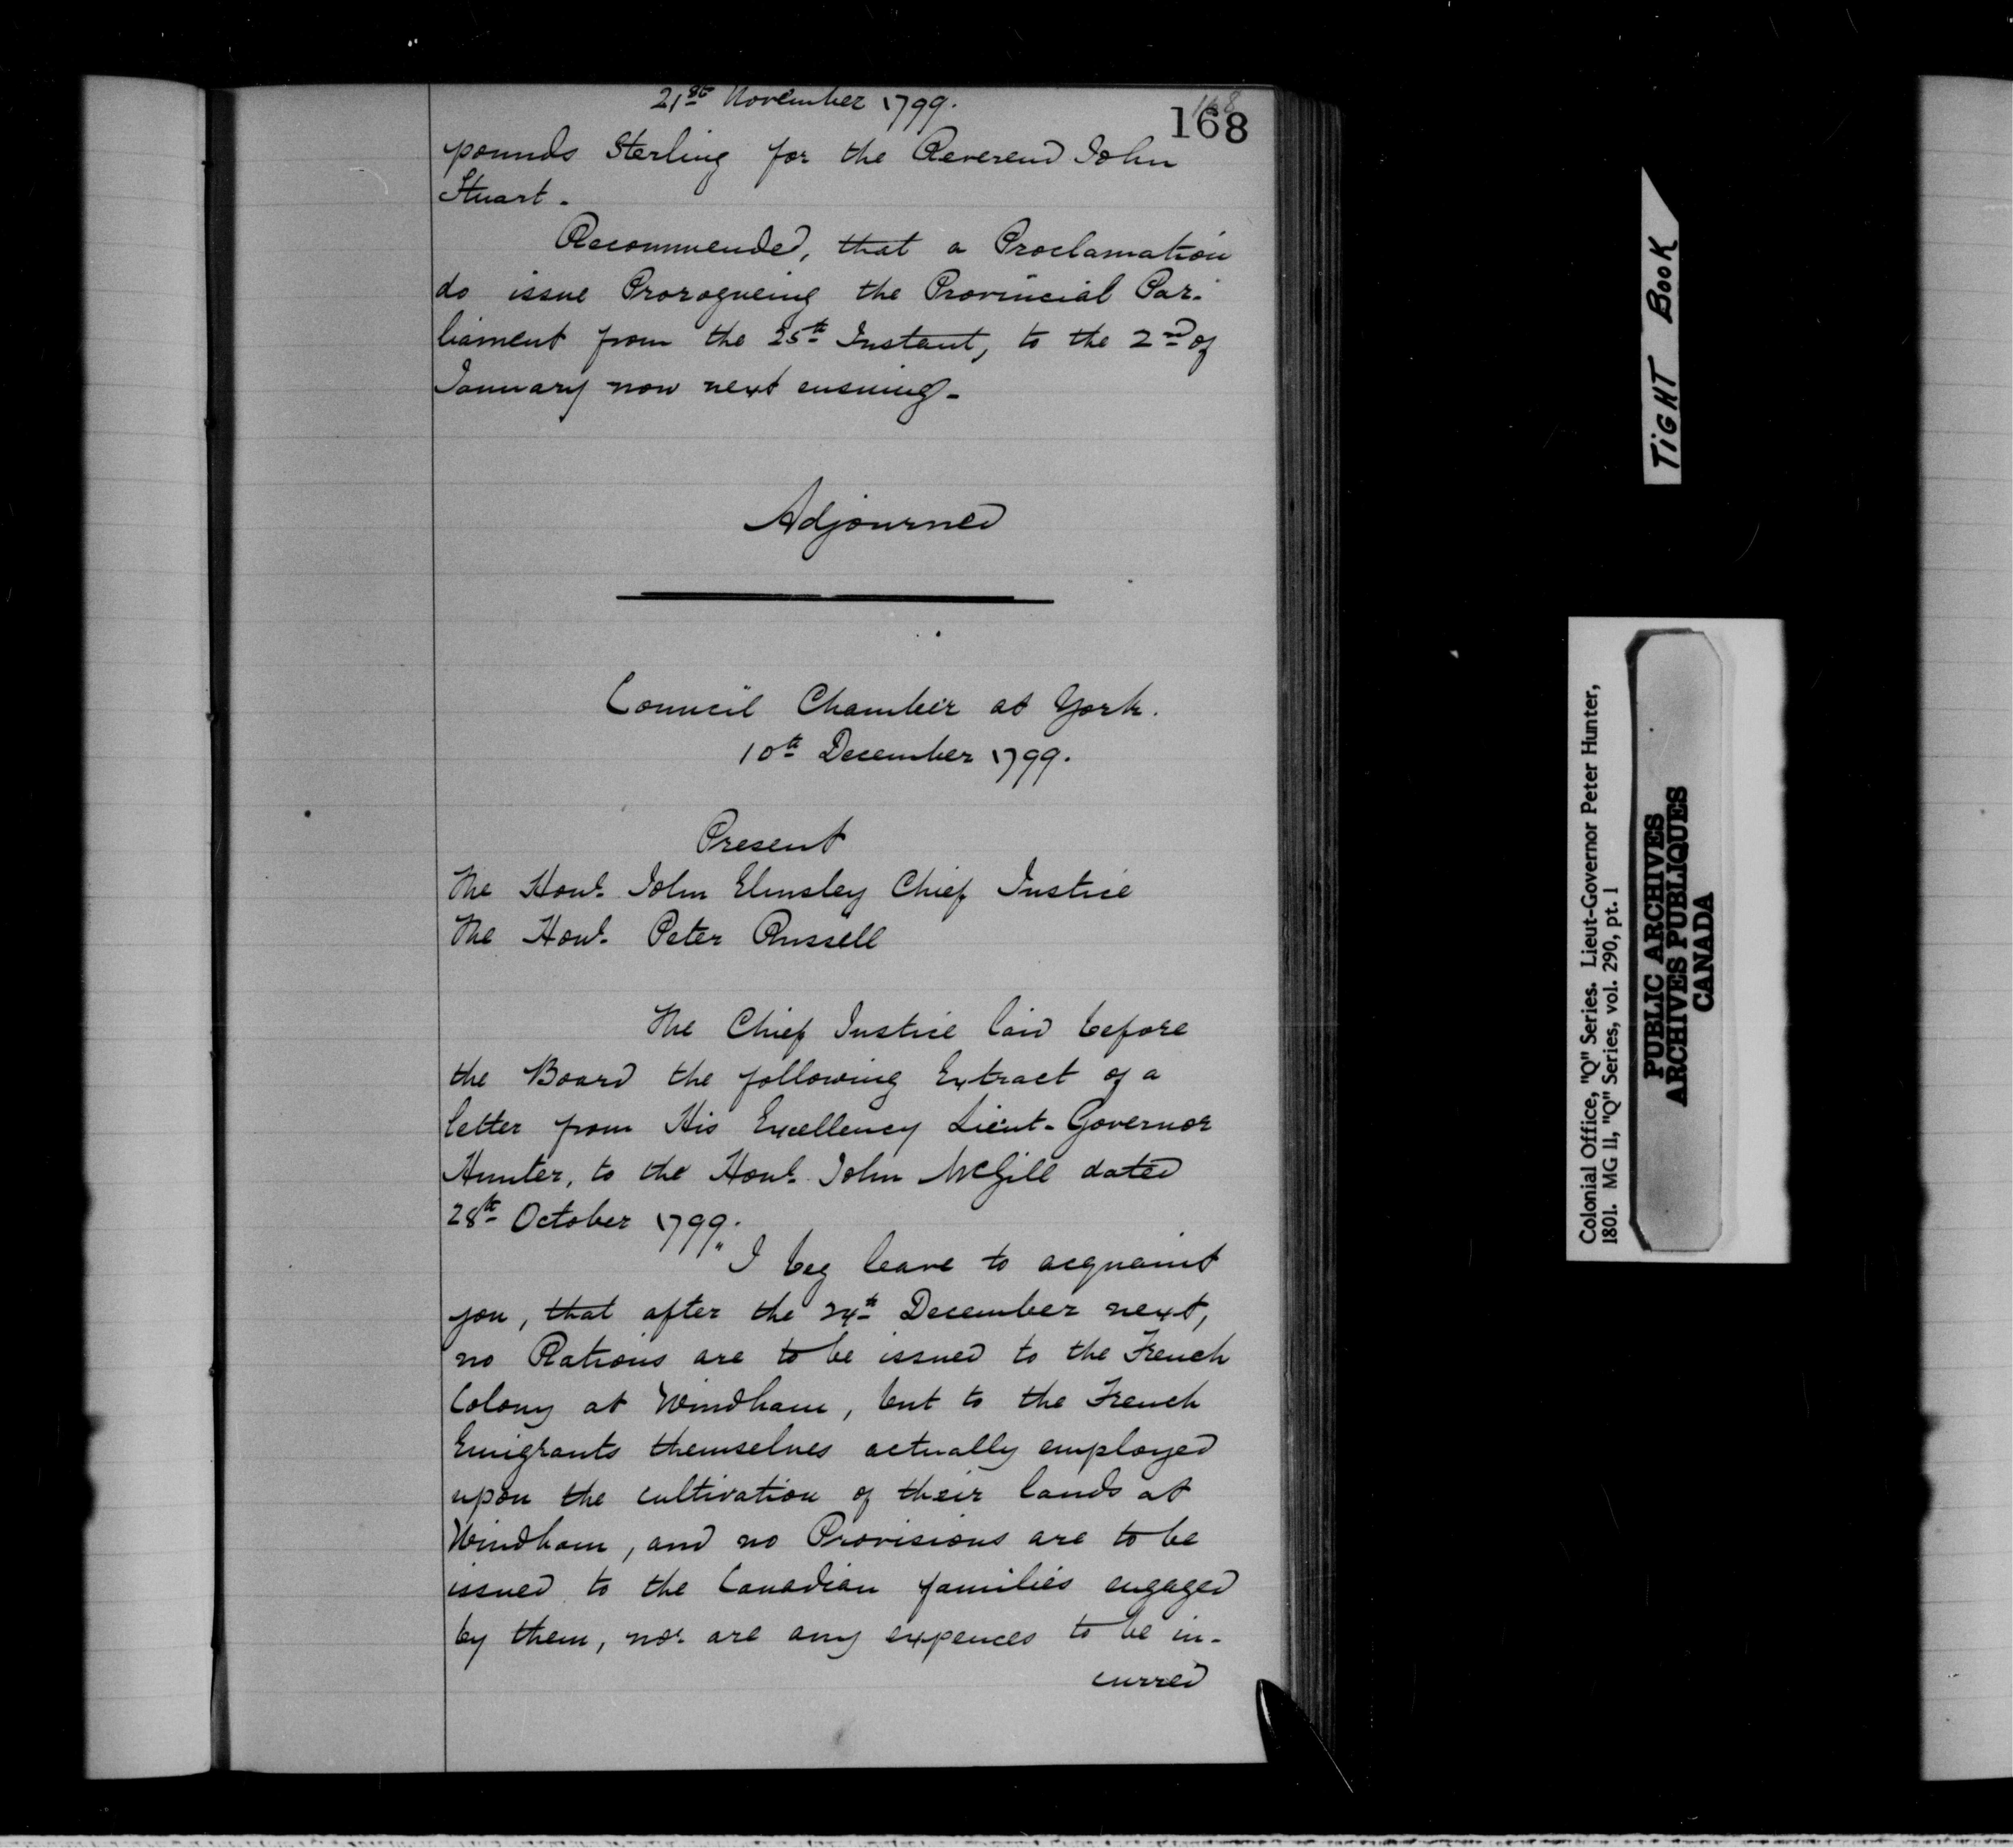 21st November 1799.
168
168
pounds Sterling for the Reverend John
Stuart.
Recommended, that a Proclamation
do issue Prorogueing the Provincial Par-
liament from the 25th Instant, to the 2nd of
January now next ensuing.
Adjourned
Council Chamber at York.
10th December 1799.
Present
The Honl. John Elmsley Chief Justice
The Honl. Peter Russell
The Chief Justice laid before
the Board the following Extract of a
letter from His Excellency Lieut-Governor
Hunter, to the Honl. John McGill dated
28th October 1799.
"I beg leave to acquaint
you, that after the 24th December next,
no Rations are to be issued to the French
Colony at Windham, but to the French
Emigrants themselves actually employed
upon the cultivation of their lands at
Windham, and no Provisions are to be
issued to the Canadian families engaged
by them, nor are any expences to be in-
curred
TiGHT BOOK
Colonial Office, "Q" Series. Lieut-Governor Peter Hunter,
1801. MG 11, "Q" Series, vol. 290, pt. 1
PUBLIC ARCHIVES
ARCHIVES PUBLIQUES
CANADA